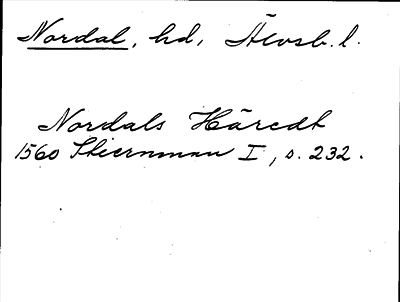 Nordal, hd, Älvsb. l.
Nordals Häredt
1560 Stiernman I, s. 232.